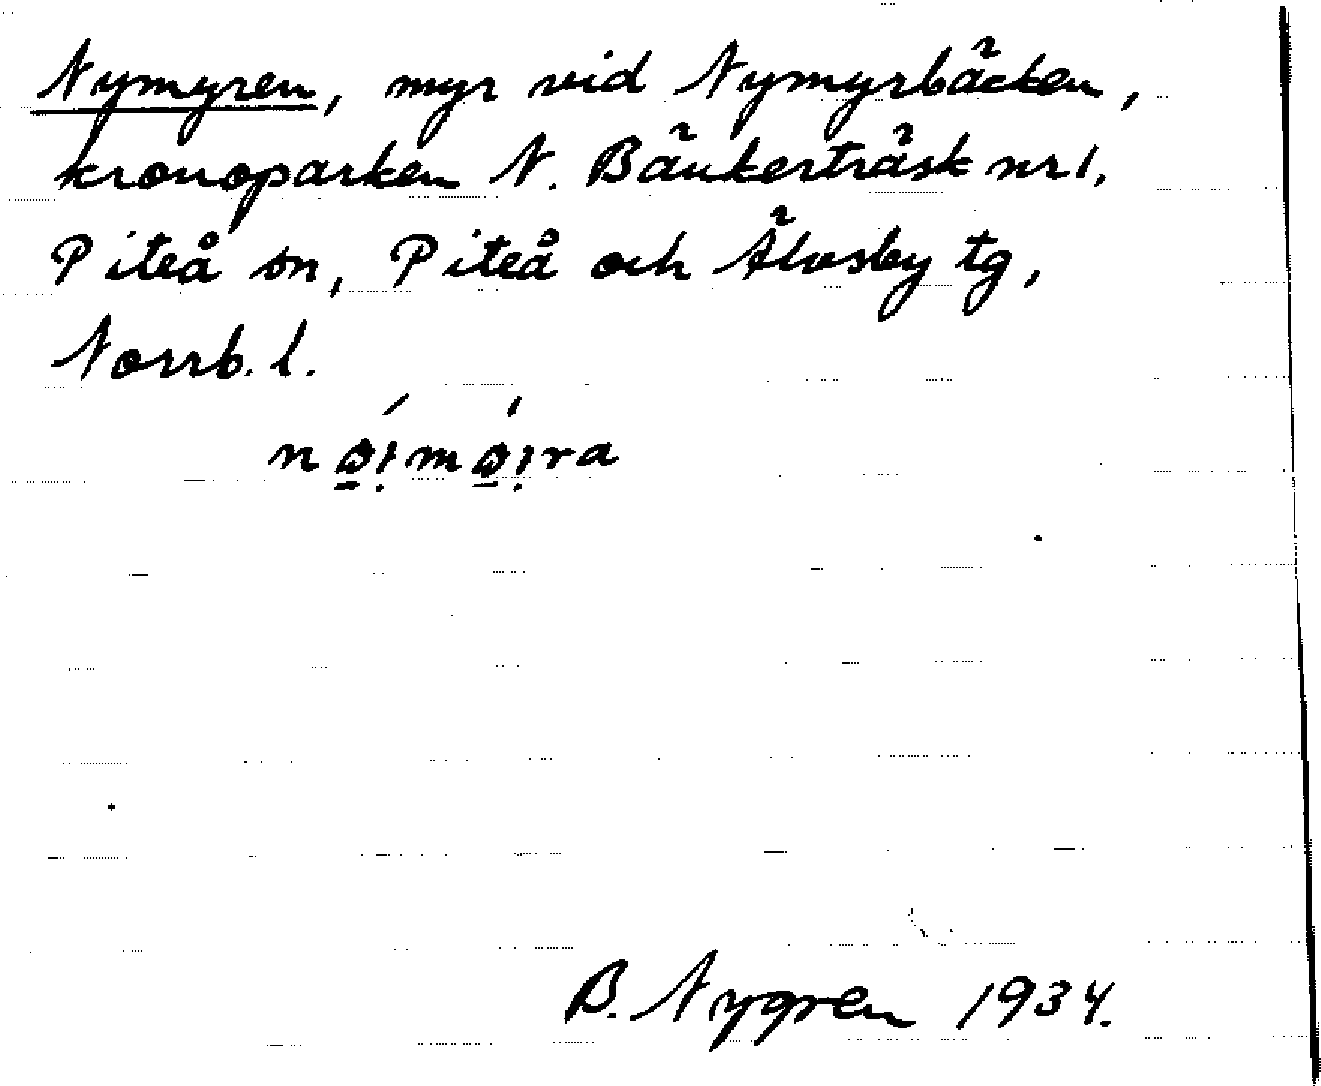 Nymyren, myr vid Nymyrbäcken,
kronoparken N. Bänkerträsk nr 1,
Piteå sn, Piteå och Älvsby tg,
Norrb. l.
nø̱ı̣́mø̱ı̣́ra
B. Nygren 1934.